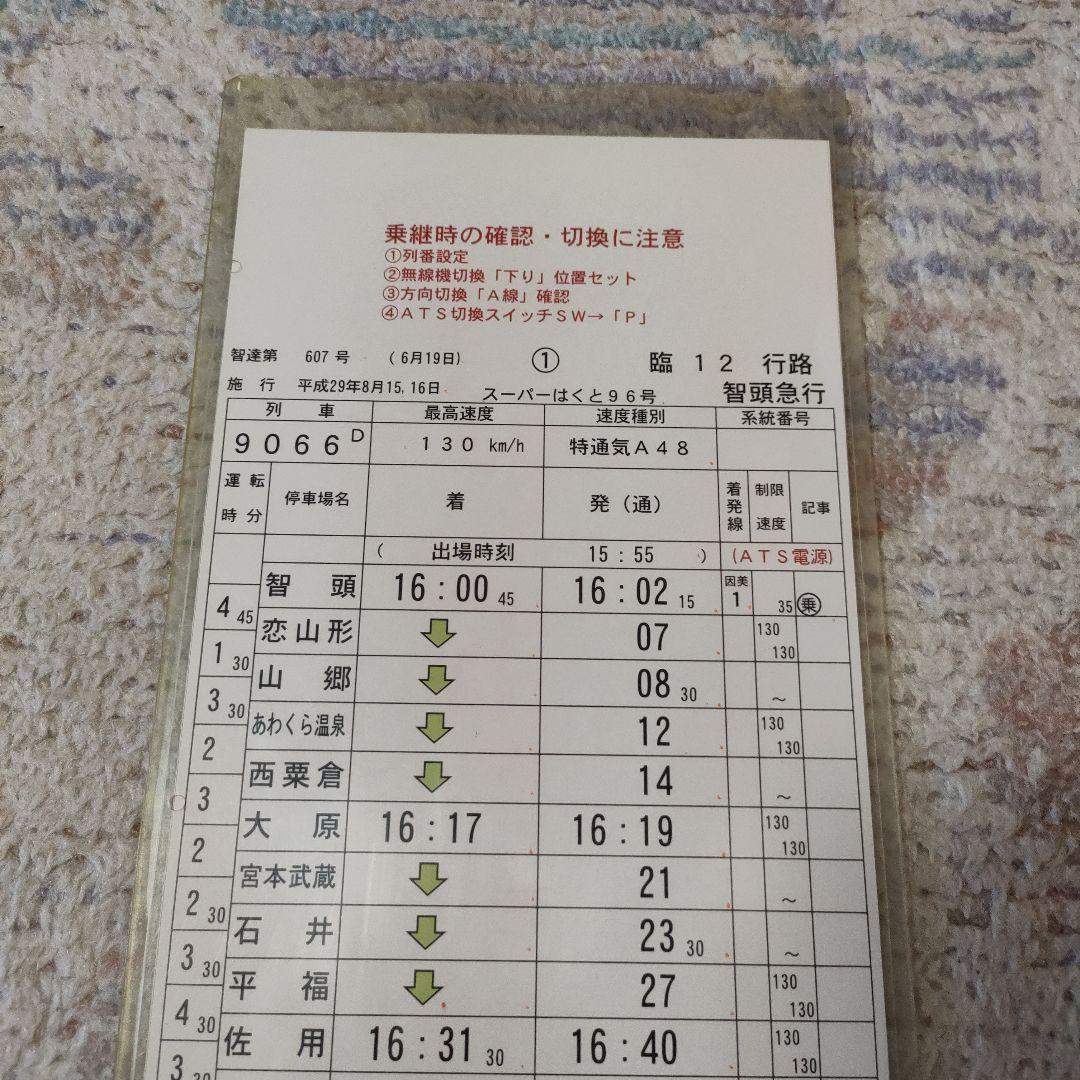 乗継時の確認・切換に注意
①列番設定
②無線機切換「下り」位置セット
③方向切換「A線」確認
④ATS切換スイッチSW→「P」
智達第 607 号 (6月19日) ① 臨 12 行路
施 行 平成29年8月15,16日 スーパーはくと96号 智頭急行
列 車 最高速度 速度種別 系統番号
9066D 130 km/h 特通気A48
運転時分 停車場名 着 発(通) 着発線 制限速度 記事
( 出場時刻 15:55 ) (ATS電源)
智頭 16:00 45 16:02 15 因美1 35 乗
4 45
恋山形 07 130 130
1 30
山郷 08 30 ~
3 30
あわくら温泉 12 130 130
2
西粟倉 14 ~
3
大原 16:17 16:19 130 130
2
宮本武蔵 21 ~
2 30
石井 23 30 ~
3 30
平福 27 130 130
4 30
佐用 16:31 30 16:40 130 130
3 30